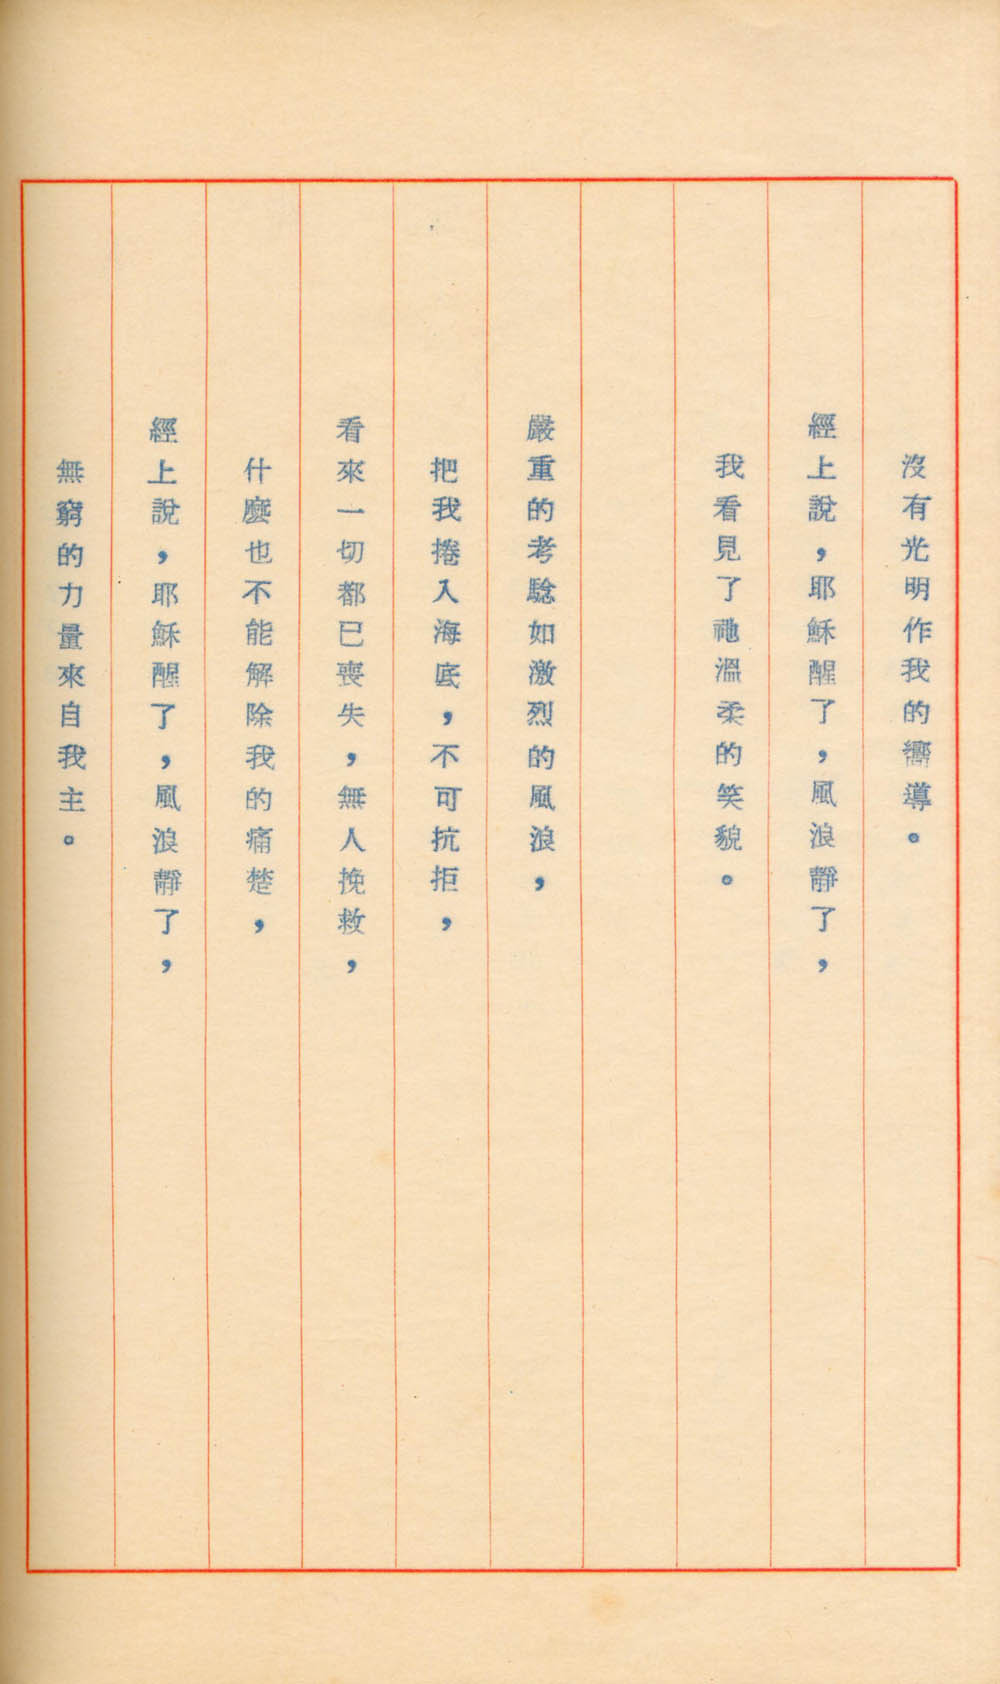 沒有光明作我的嚮導。
經上說，耶穌醒了，風浪靜了，
我看見了祂溫柔的笑貌。
嚴重的考驗如激烈的風浪，
把我捲入海底，不可抗拒，
看來一切都已喪失，無人挽救，
什麼也不能解除我的痛楚，
經上說，耶穌醒了，風浪靜了，
無窮的力量來自我主。